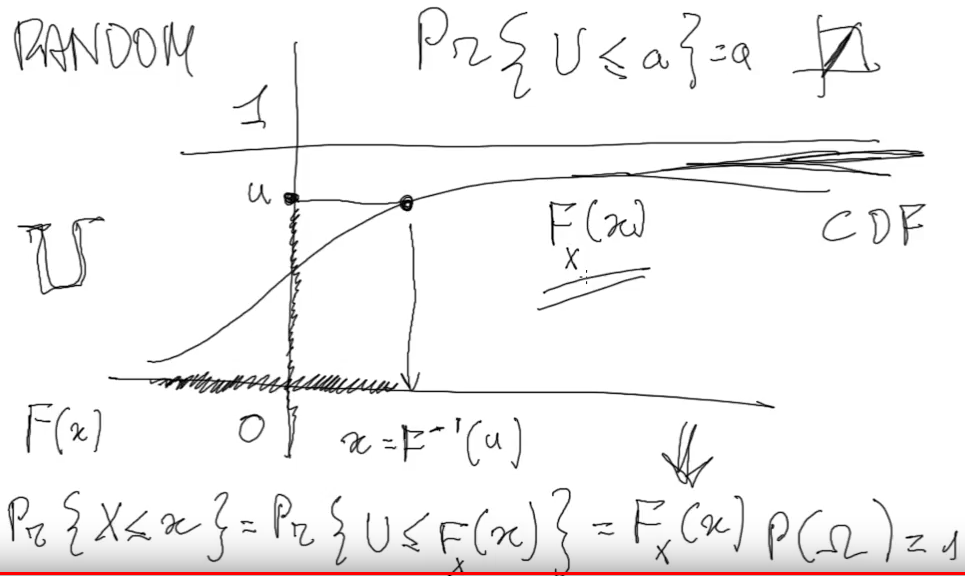 RANDOM
Pr{U ≤ a} = a
1
u
U
F_X(x)
CDF
F(x)
0
x = F⁻¹(u)
⇓
Pr{X ≤ x} = Pr{U ≤ F_X(x)} = F_X(x)
P(Ω) = 1